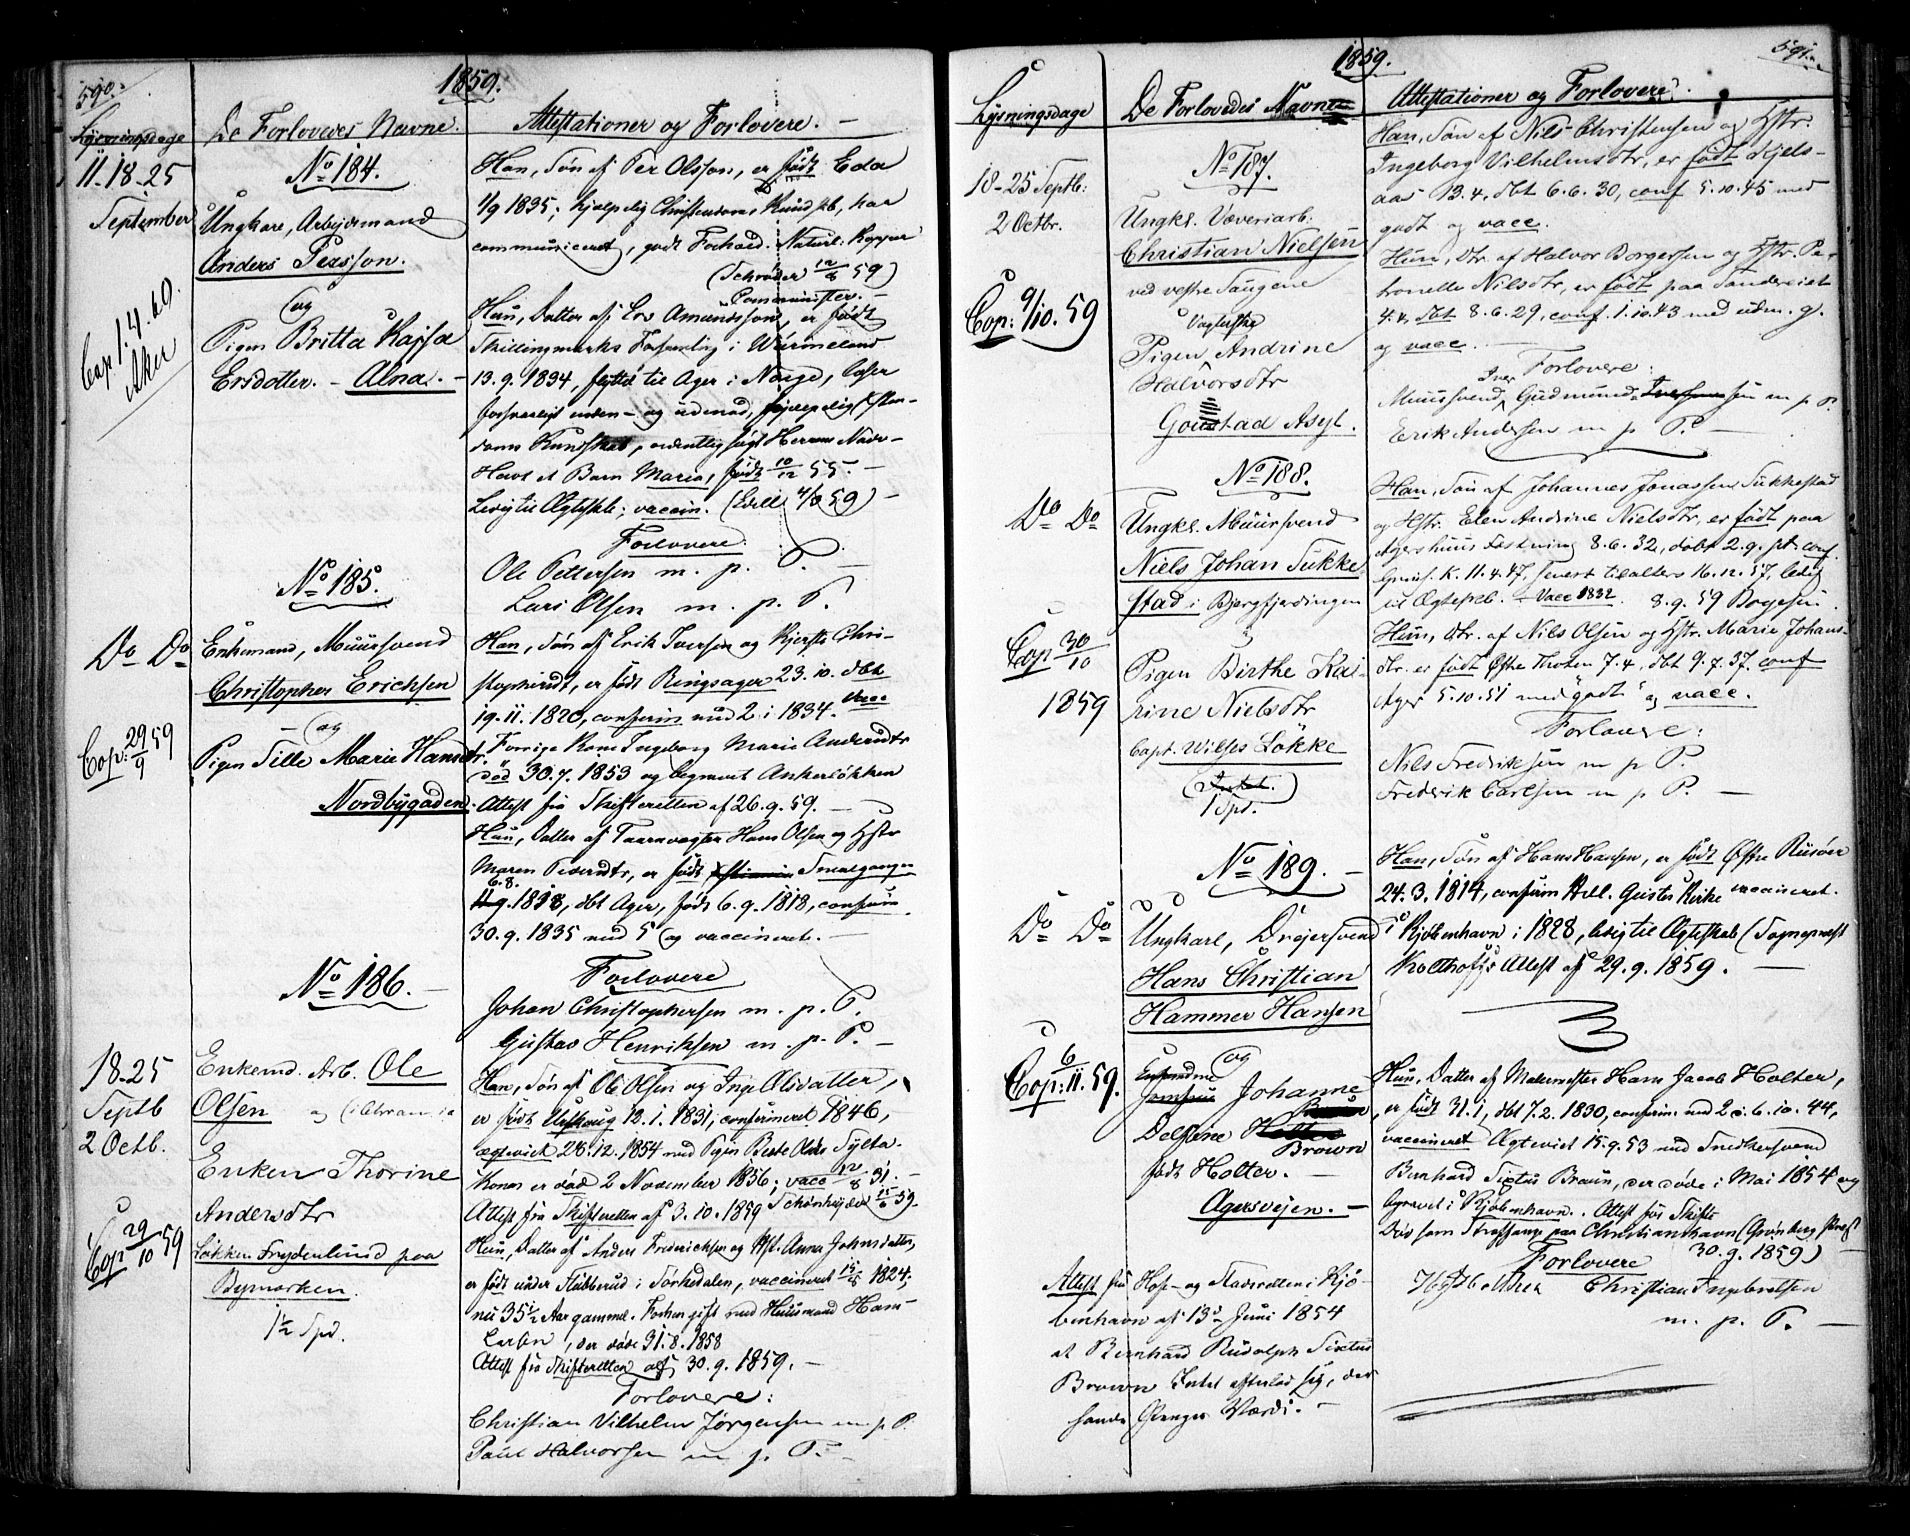 590.
1859.
Lysningsdage
De Forlovedes Navne.
Attestationer og Forlovere. —
11-18-25
September
No 184.
Ungkarl, Arbejdsmand
Anders Persson.
og
Pigen Britta Kajsa
Ersdotter. — Alna. —
Cop. 1.4.60.
Aker
Han, Søn af Per Olsson, er født Eda
1/9 1835; hjælpelig Christendoms Kundskb, har
communiceret, godt Forhold. Naturl: Kopper
(Schrøder 12/8 59)
Comminister. —
Hun, Datter af Ers Amundsson, er født
Skillingmarks Forsamling i Wärmeland
13.9.1834, flyttet til Ager i Norge, læser
forsvarligt inden- og udenad, hjælpelig Chrsten-
doms Kundskab, ordentlig søgt Herrens Nadv-
Havt et Barn Maria, født 10/12 55. —
Ledig til Ægteskb; vaccin. (4/9 59) —
Forlovere:
Ole Pettersen m. p. P. —
Lars Olsen m. p. P.
No 185.
Do Do
Enkemand, Muursvend
Christopher Erichsen
— og
Pigen Tille Marie Hansdtr.
Nordbygaden.
Cop: 29/9 59
Han, Søn af Erik Iversen og Kjersti Chri-
stophersdt, er født Ringsager 23.10. dbt
19.11.1820, confirm med 2 i 1834. vacc
Forrige Kone Ingeborg Marie Andersdtr
død 30.7.1853 og begravet Ankerløkken
Attest fra Skifteretten af 26.9.59. —
Hun, Datter af Taarnvægter Hans Olsen og Hstr
Maren Piersdtr, er født Smalgangen
6.8.
1818, dbt Ager, født 6.9.1818, confirm
30.9.1835 med 5 og vaccineret. —
Forlovere
Johan Christophersen m. p. P.
Gustav Henriksen m. p. P. —
No 186. —
18-25
Septb
2 Octb.
Enkemd. Arb. Ole
Olsen og
Enken Thorine
Andersdtr
Løkken Frydenlund paa
Bymarken.
1½ Spd.
Cop 29/10 59
Han, Søn af Ole Olsen og Inge Olsdatter,
er født Urskoug 12.1.1831, confirmeret 1846,
ægteviet 28.12.1854 med Pigen Berte Olsdr Sylta.
Konen er død 2 November 1856; vacc 12/8 31. —
Attest fra Skifteretten af 3.10.1859
Hun, Datter af Anders Frederichsen og Hst. Anna Johnsdatter,
er født under Stubberud i Sørkedalen, vaccineret 1824;
nu 35½ Aar gammel. Forhen gift med Huusmand Hans
Larsen, der døde 31.8.1858
Attest fra Skifteretten af 30.9.1859. —
Forlovere:
Christian Vilhelm Jørgensen m. p. P.
Paul Halvorsen m. p. P. —
591.
1859.
Lysningsdage
De Forlovedes Navne
Attestationer og Forlovere.
No 187.
18-25 Septb:
2 Octbr.
Ungkl. Væveriarb.
Christian Nielsen
ved vestre Saugene
Pigen Andrine
Halvorsdtr
Goustad Asyl.
Cop: 9/10. 59
Han, Søn af Nils Christensen og Hstr.
Ingeborg Vilhelmsdtr, er født Kjels-
aas 13.4, dbt 6.6.30, conf 5.10.45 med
godt og vacc.
Hun, dtr. af Halvor Borgersen og Hstr. Pe-
tronelle Nilsdtr, er født paa Tandereiet
4.4. dbt 8.6.29, conf. 1.10.43 med udm. g.
og vacc.
Forlovere:
Iver
Muursvend Gudmundsen m p P.
Erik Andersen m p P. —
No 188.
Do Do
Ungkl. Muursvend
Niels Johan Sukke-
stad i Bjergfjerdingen
Pigen Birthe Kat-
rine Nielsdtr
Capt. Wilses Løkke
1 Spd.
Cop 30/10
1859
Han, Søn af Johannes Jonassen Sukkestad
og Hstr. Elen Andrine Nielsdtr, er født paa
Agershuus Fæstning 8.6.32, døbt 2.9. conf.
Garnis. K. 11.4.47, senest tilalters 16.12.57, ledig
til Ægteskb. — Vacc 1832. 8.9.59
Hun, dtr. af Nils Olsen og Hstr. Marie Johans-
dtr. er født Østre Thoten 7.4, dbt 9.7.37. conf
Ager 5.10.51 med "godt" og vacc.
Forlovere:
Nils Fredriksen m p P.
Frederik Carlsen m p P. —
No 189. —
Do Do
Ungkarl, Drejersvend
Hans Christian
Hammer Hansen
og
Johanne
Delfine
Brown
født Holter. —
Agersvejen. —
Cop: 6/11. 59.
Han, Søn af Hans Hansen, er født Østre Riisøer
24.3.1814, confirm Hell. Geistes Kirke vaccineret.
i Kjøbenhavn i 1828, ledig til Ægteskab (Sognepræst
Attest af 29.9.1859. —
Hun, Datter af Malermester Hans Jacob Holter,
er født 31.1, dbt 7.2.1830, confirm. med 2 d. 6.10.44,
vaccineret Ægteviet 15.9.53 med Snedkersvend
Bernhard Sixtus Braun, der døde i Mai 1854 og
begravet i Kjøbenhavn. Attest fra Skifte
Død som Straffange paa Christianshavn (Grønberg Præst
30.9.1859)
Forlovere
Christian Ingebretsen
m. p. P. —
Attest fra Hof- og Stadsretten i Kjø-
benhavn af 13de Juni 1854
at Bernhard Rudolph Sixtus
Brown Intet efterlod sig, der
havde Penges Værdi. —